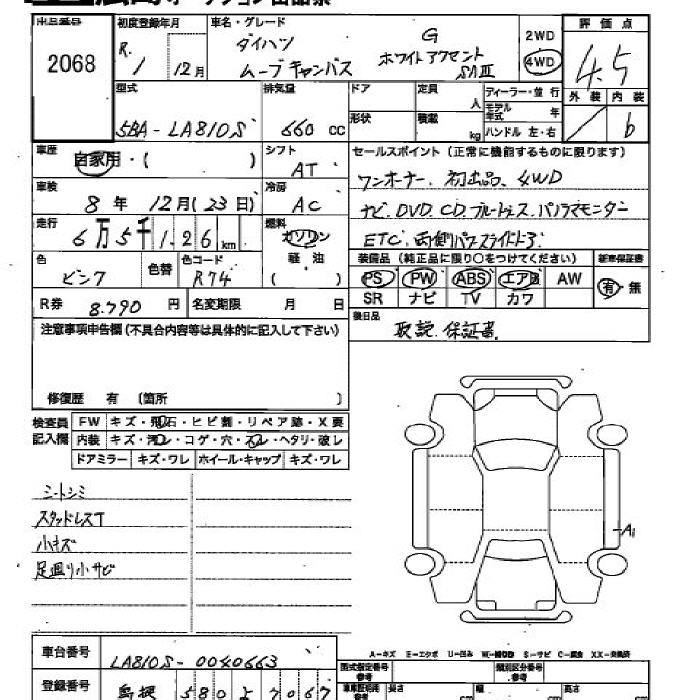 出品番号 初度登録年月 車名・グレード 評価点
2068 R. 1 / 12月 ダイハツ ムーブキャンバス G ホワイトアクセント SAⅢ 2WD 4WD 4.5
型式 排気量 ドア 定員 人 ディーラー・並行 外装 内装
5BA-LA810S 660 cc 形状 積載 kg モデル年式 年 ハンドル 左・右 / b
車歴 自家用・( ) シフト AT セールスポイント(正常に機能するものに限ります)
車検 8年 12月(23日) 冷房 AC ワンオーナー、初出品、4WD
走行 6万5千126km 燃料 ガソリン 軽油 ( ) ナビ、DVD、CD、ブルートゥース、パノラマモニター
ETC、両側パワースライドドア
色 ピンク 色替 色コード R74 装備品(純正品に限り○をつけてください) 新車保証書
PS PW ABS エアB AW 有・無
SR ナビ TV カワ
R券 8,790円 名変期限 月 日 後日品
取説、保証書
注意事項申告欄(不具合内容等は具体的に記入して下さい)
修復歴 有 (箇所 )
検査員記入欄 FW キズ・飛石・ヒビ割・リペア跡・X要
内装 キズ・汚レ・コゲ・穴・スレ・ヘタリ・破レ
ドアミラー キズ・ワレ ホイール・キャップ キズ・ワレ
シートシミ
スタッドレスT
小キズ
足廻り小サビ
A1
A-キズ E-エクボ U-凹み W-補修 S-サビ C-腐食 XX-交換済
車台番号 LA810S-0040663
型式指定番号 類別区分番号
登録番号 島根 580 7067
長さ cm 幅 cm 高さ cm